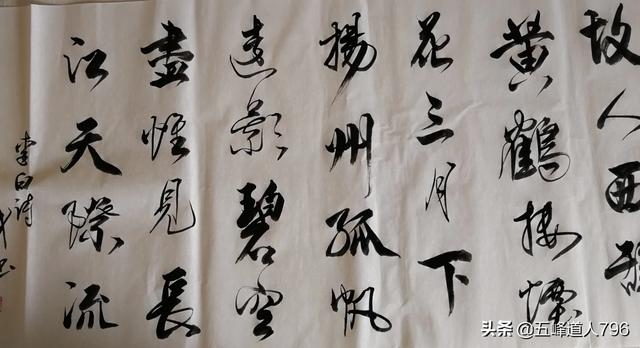 故人西辭
黄鶴楼煙
花三月下
揚州孤帆
遠影碧空
盡惟見長
江天際流
李白诗
头条 @五峰道人796